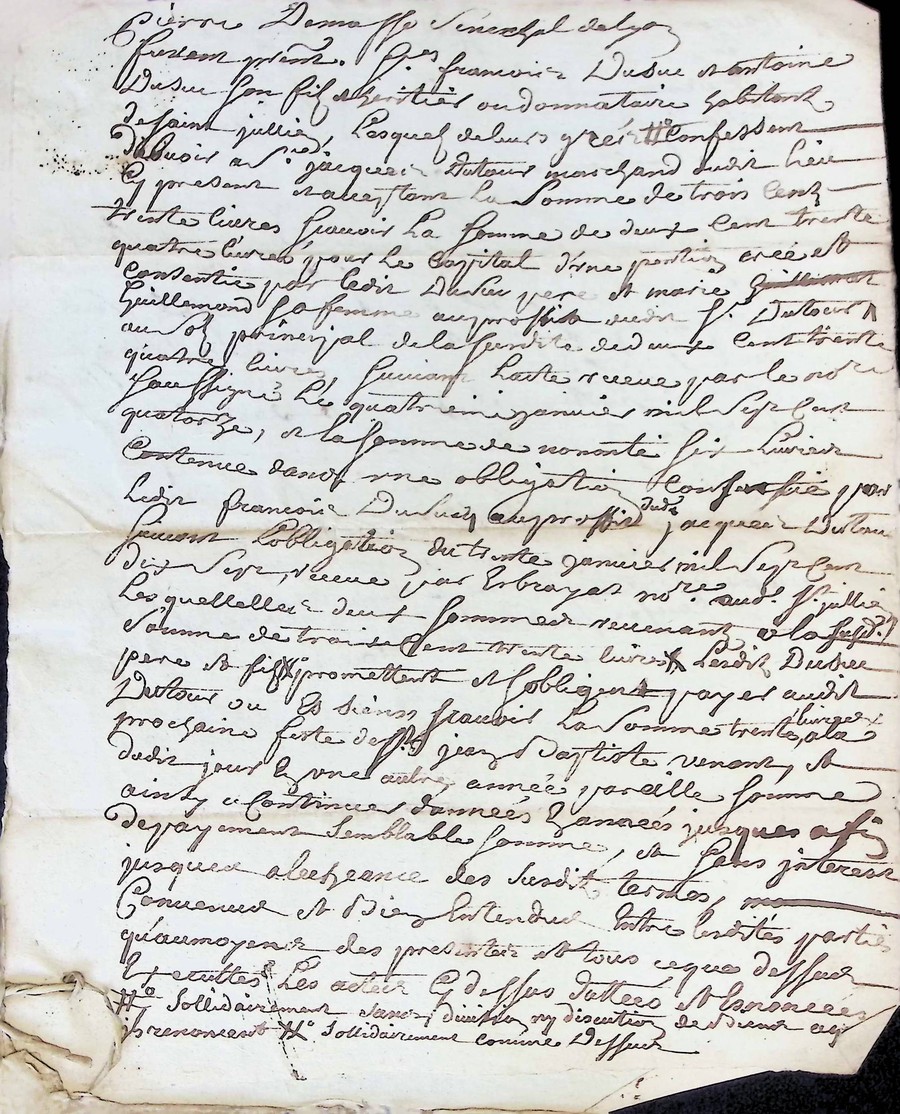 pierre Demasso Seneschal de lyon
furent pnts. Srs francois Dusuc et antoine
Dusuc son filz et heritier ou donnataire habitant
de saint jullien, Lesquels de leurs grés # Confessent
debvoir a Sr jacques Dutour marchand dudit lieu
Cy present et acceptant La Somme de trois Cent
trente livres scavoir La somme de deux Cent trente
quatre livres pour Le Cappital d'une pention créé et
Consentie par ledit Dusuc pere et marie
Guillermond sa femme au proffit dudit Sr Dutour
au Sol principal de la susdite de deux Cent trente
quatre livres suivant L'acte receue par le nore
Soussigné Le quatrieme janvier mil Sept Cent
quatorze, et la somme de nonnante six Livres
Contenue dans une obligation Confessée par
Ledit francois Dusuc au proffit dudt jacques Dutour
suivant L'obligation du trente janvier mil Sept Cent
dix Sept, receue par nore audt St jullien
Lesquelles deux sommes revenant a la susd.
Somme de trois Cent trente livres Lesdits Dusuc
pere et filz # promettent et s'obligent payer audit
Dutour ou Es Siens scavoir La Somme trente livres a la
prochaine feste de St jean Baptiste venant, et
dudit jour En une autre année pareille somme
ainsy a Continuer d'années En années jusques a fin
de payement Semblable somme, et sans interest
jusques a l'escheance des susdits termes,
Convenus et Bien Entendus Entre lesdites parties
qu'au moyens des presentes et tous ce que dessus
Executtés Les actes Cy dessus dattées et Enoncées
# Sollidairement sans division ny discution de Biens
renoncent # Sollidairement comme Dessus